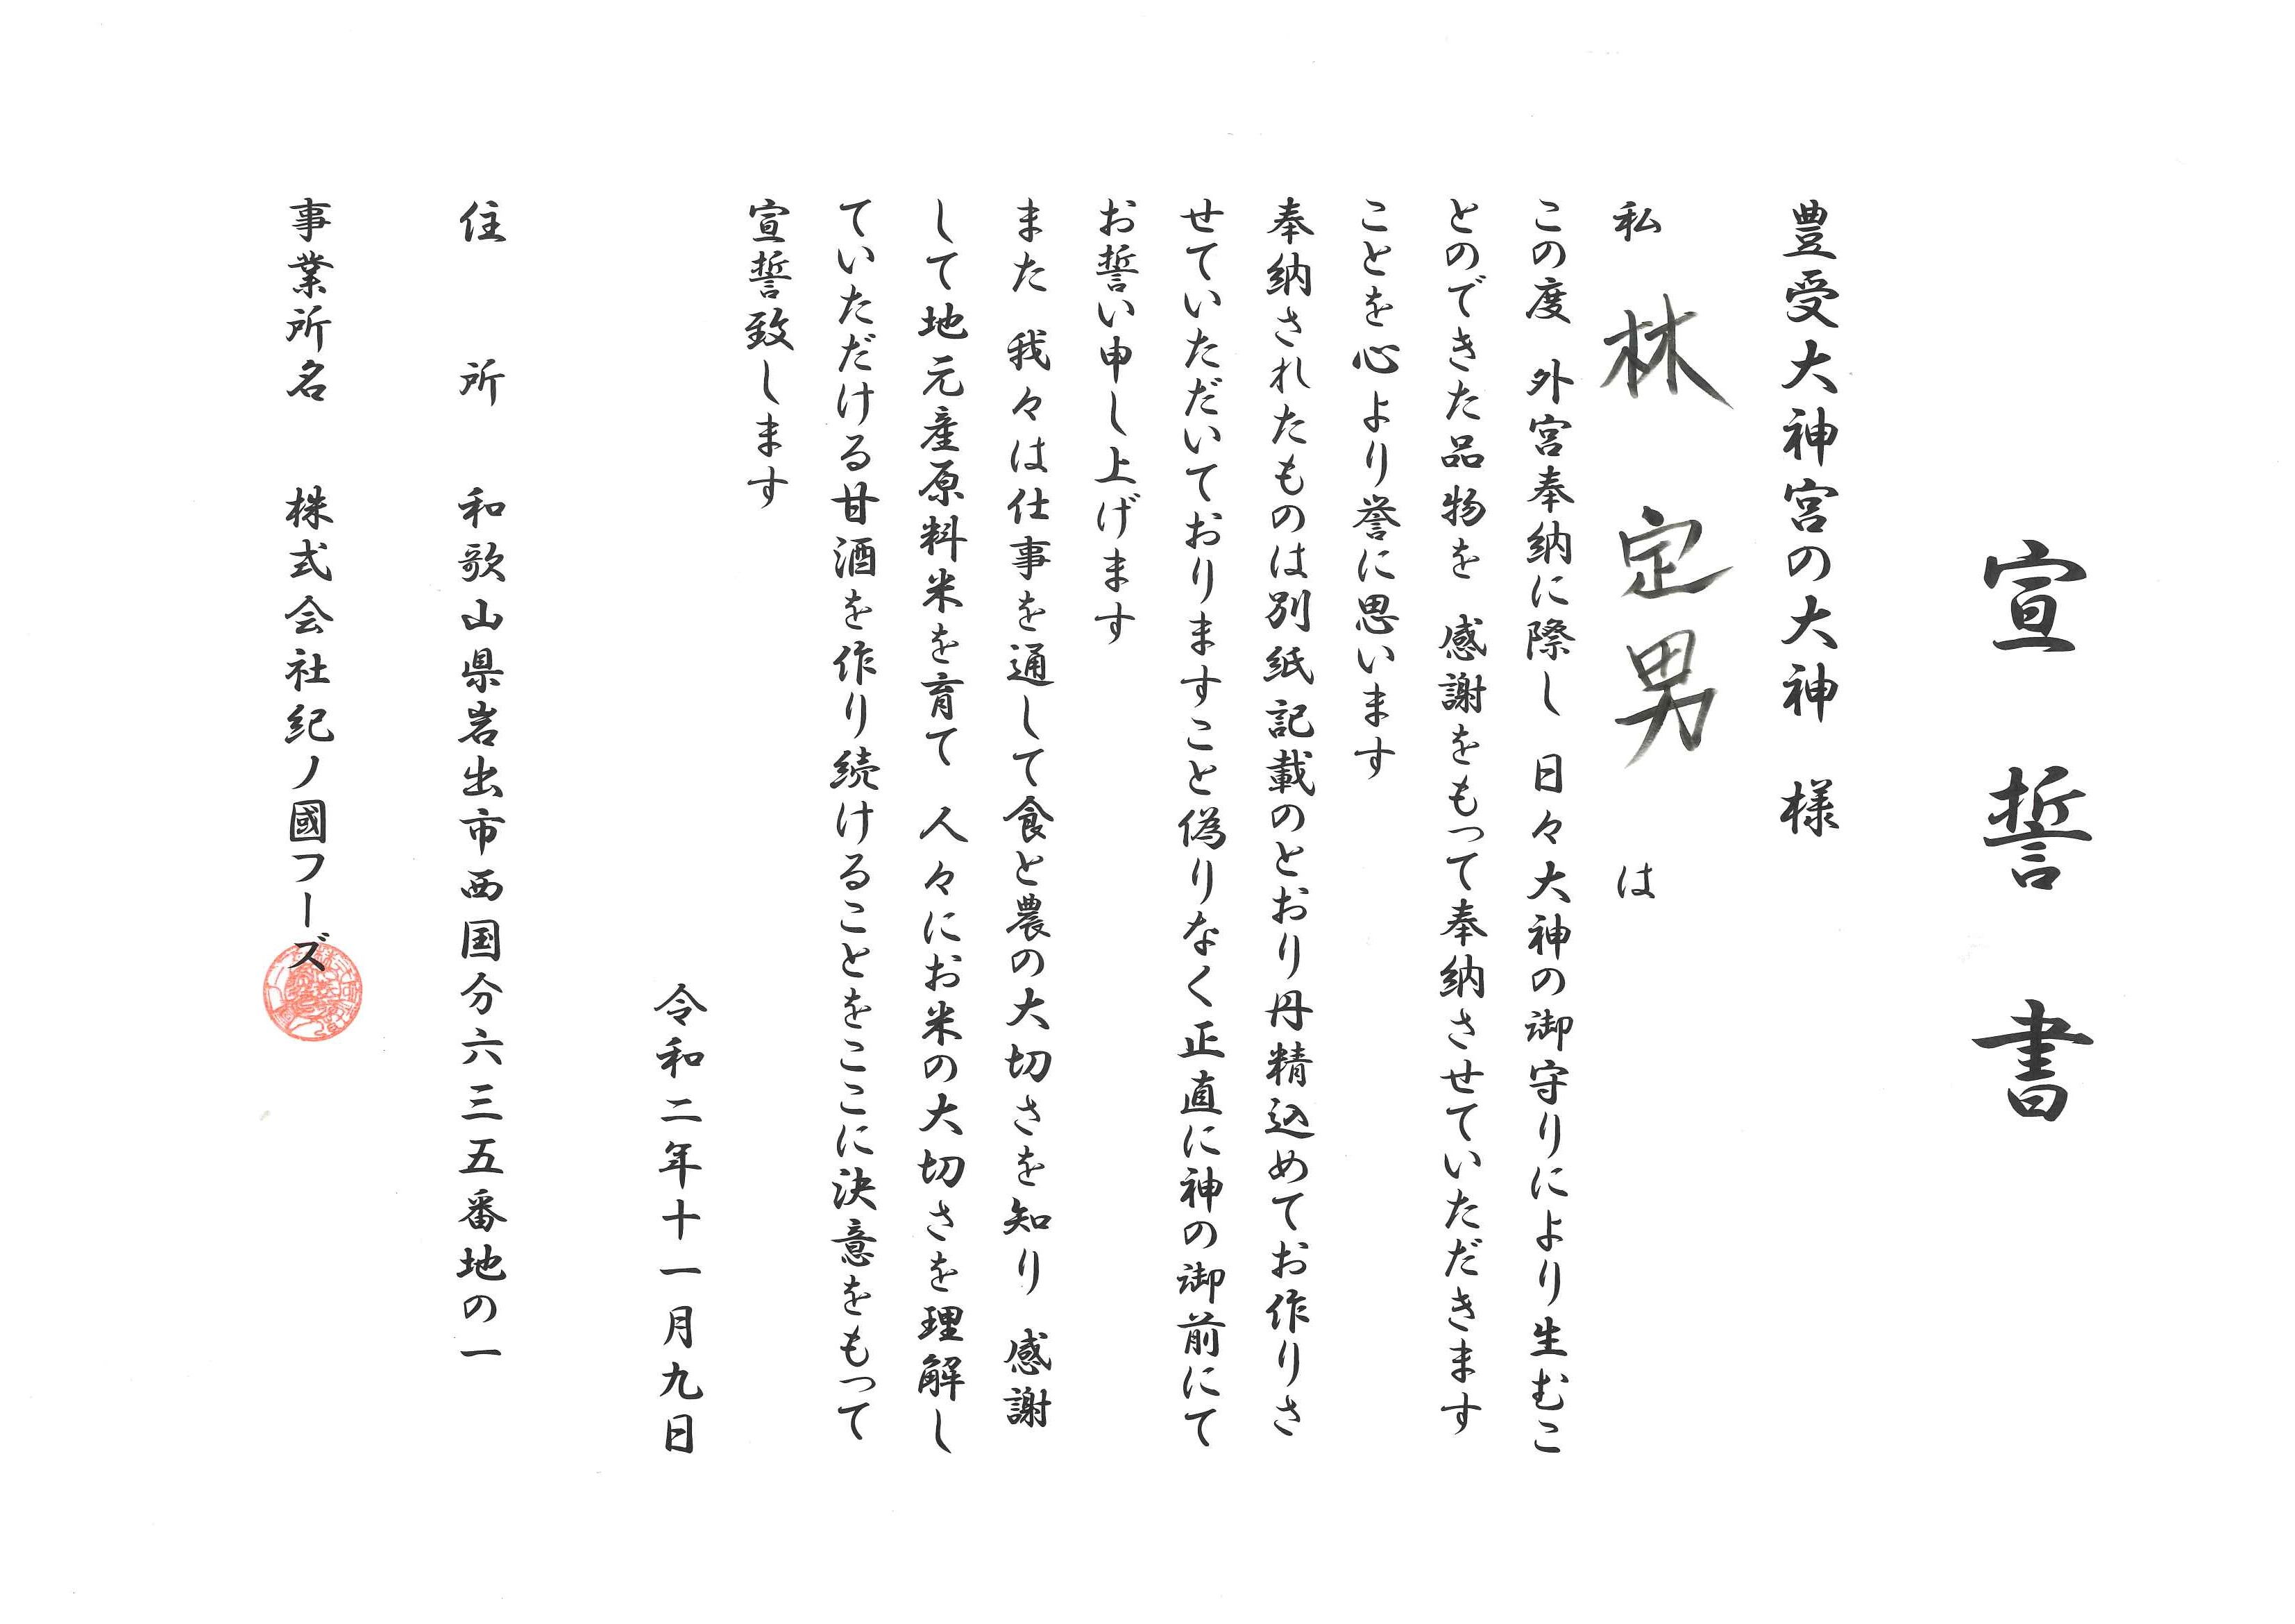 宣誓書
豊受大神宮の大神　様
私　林　定男　は
この度　外宮奉納に際し　日々大神の御守りにより生むこ
とのできた品物を　感謝をもって奉納させていただきます
ことを心より誉に思います
奉納されたものは別紙記載のとおり丹精込めてお作りさ
せていただいておりますこと偽りなく正直に神の御前にて
お誓い申し上げます
また　我々は仕事を通して食と農の大切さを知り　感謝
して地元産原料米を育て　人々にお米の大切さを理解し
ていただける甘酒を作り続けることをここに決意をもって
宣誓致します
令和二年十一月九日
住　　所　　和歌山県岩出市西国分六三五番地の一
事業所名　　株式会社紀ノ國フーズ